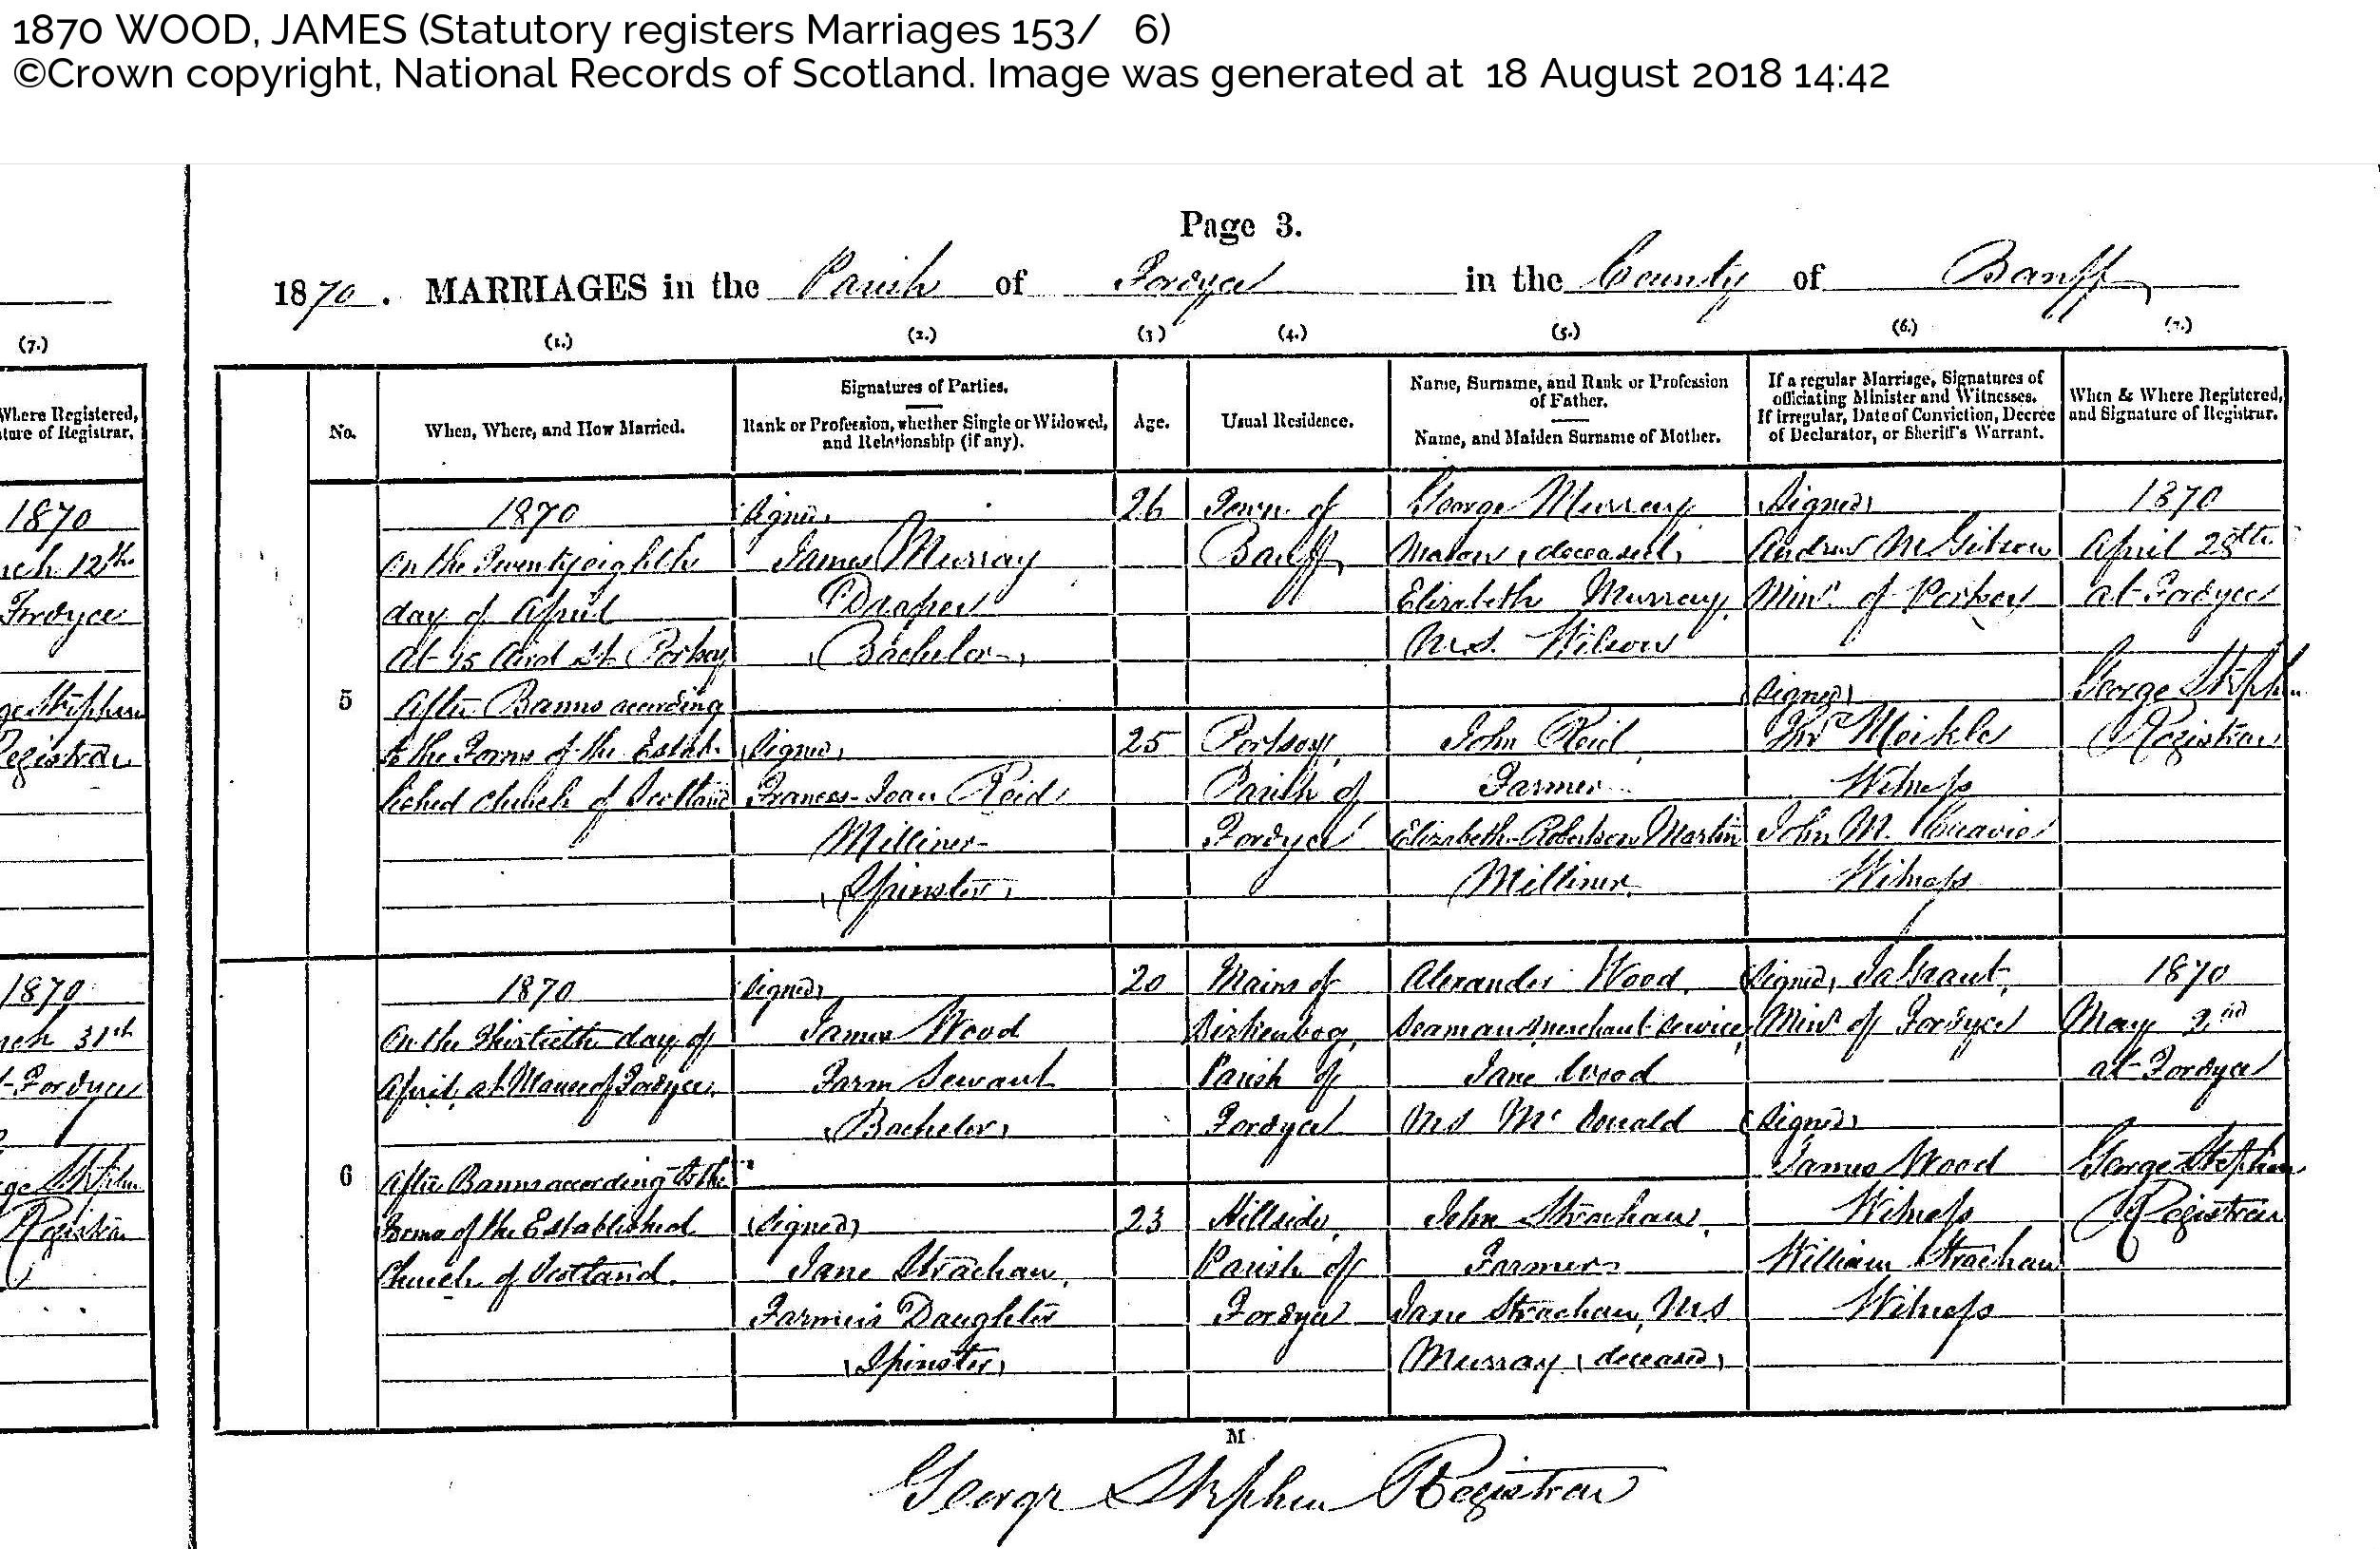 1870 WOOD, JAMES (Statutory registers Marriages 153/ 6)
©Crown copyright, National Records of Scotland. Image was generated at 18 August 2018 14:42
Page 3.
1870. MARRIAGES in the Parish of Fordyce in the County of Banff
(7.)
(1.) (2.) (3) (4.) (5.) (6.) (7.)
Where Registered,
ture of Registrar.
No.
When, Where, and How Married.
Signatures of Parties.
Rank or Profession, whether Single or Widowed,
and Relationship (if any).
Age.
Usual Residence.
Name, Surname, and Rank or Profession
of Father.
Name, and Maiden Surname of Mother.
If a regular Marriage, Signatures of
officiating Minister and Witnesses.
If irregular, Date of Conviction, Decree
of Declarator, or Sheriff's Warrant.
When & Where Registered,
and Signature of Registrar.
1870
rch 12th
Fordyce
ge Stephen
Registrar
5
1870
On the Twentyeighth
day of April
At 15 Aird St. Portsoy
After Banns according
to the Forms of the Estab-
lished Church of Scotland
(Signed)
James Murray
Draper
(Bachelor)
26
Town of
Banff
George Murray
Mason (deceased)
Elizabeth Murray
M.S. Wilson
(Signed)
Frances Joan Reid
Milliner
(Spinster)
25
Portsoy,
Parish of
Fordyce
John Reid,
Farmer
Elizabeth Robertson Martin
Milliner
(Signed)
Andrew
Minr. of Portsoy
(Signed)
Meikle
Witness
John M.
Witness
1870
April 28th
at Fordyce
George Stephen
Registrar
1870
rch 31th
t Fordyce
ge Stephen
Registrar
6
1870
On the Thirtieth day of
April, at Manse of Fordyce.
After Banns according to the
Forms of the Established
Church of Scotland.
(Signed)
James Wood
Farm Servant
(Bachelor)
20
Mains of
Birkenbog,
Parish of
Fordyce
Alexander Wood,
Seaman merchant service,
Jane Wood
M.S. McDonald
(Signed)
Jane Strachan,
Farmer's Daughter
(Spinster)
23
Hillside,
Parish of
Fordyce
John Strachan,
Farmer
Jane Strachan, M.S.
Murray (deceased)
(Signed) Ja Grant,
Minr. of Fordyce
(Signed)
James Wood
Witness
William Strachan
Witness
1870
May 2nd
at Fordyce
George Stephen
Registrar
M
George Stephen Registrar